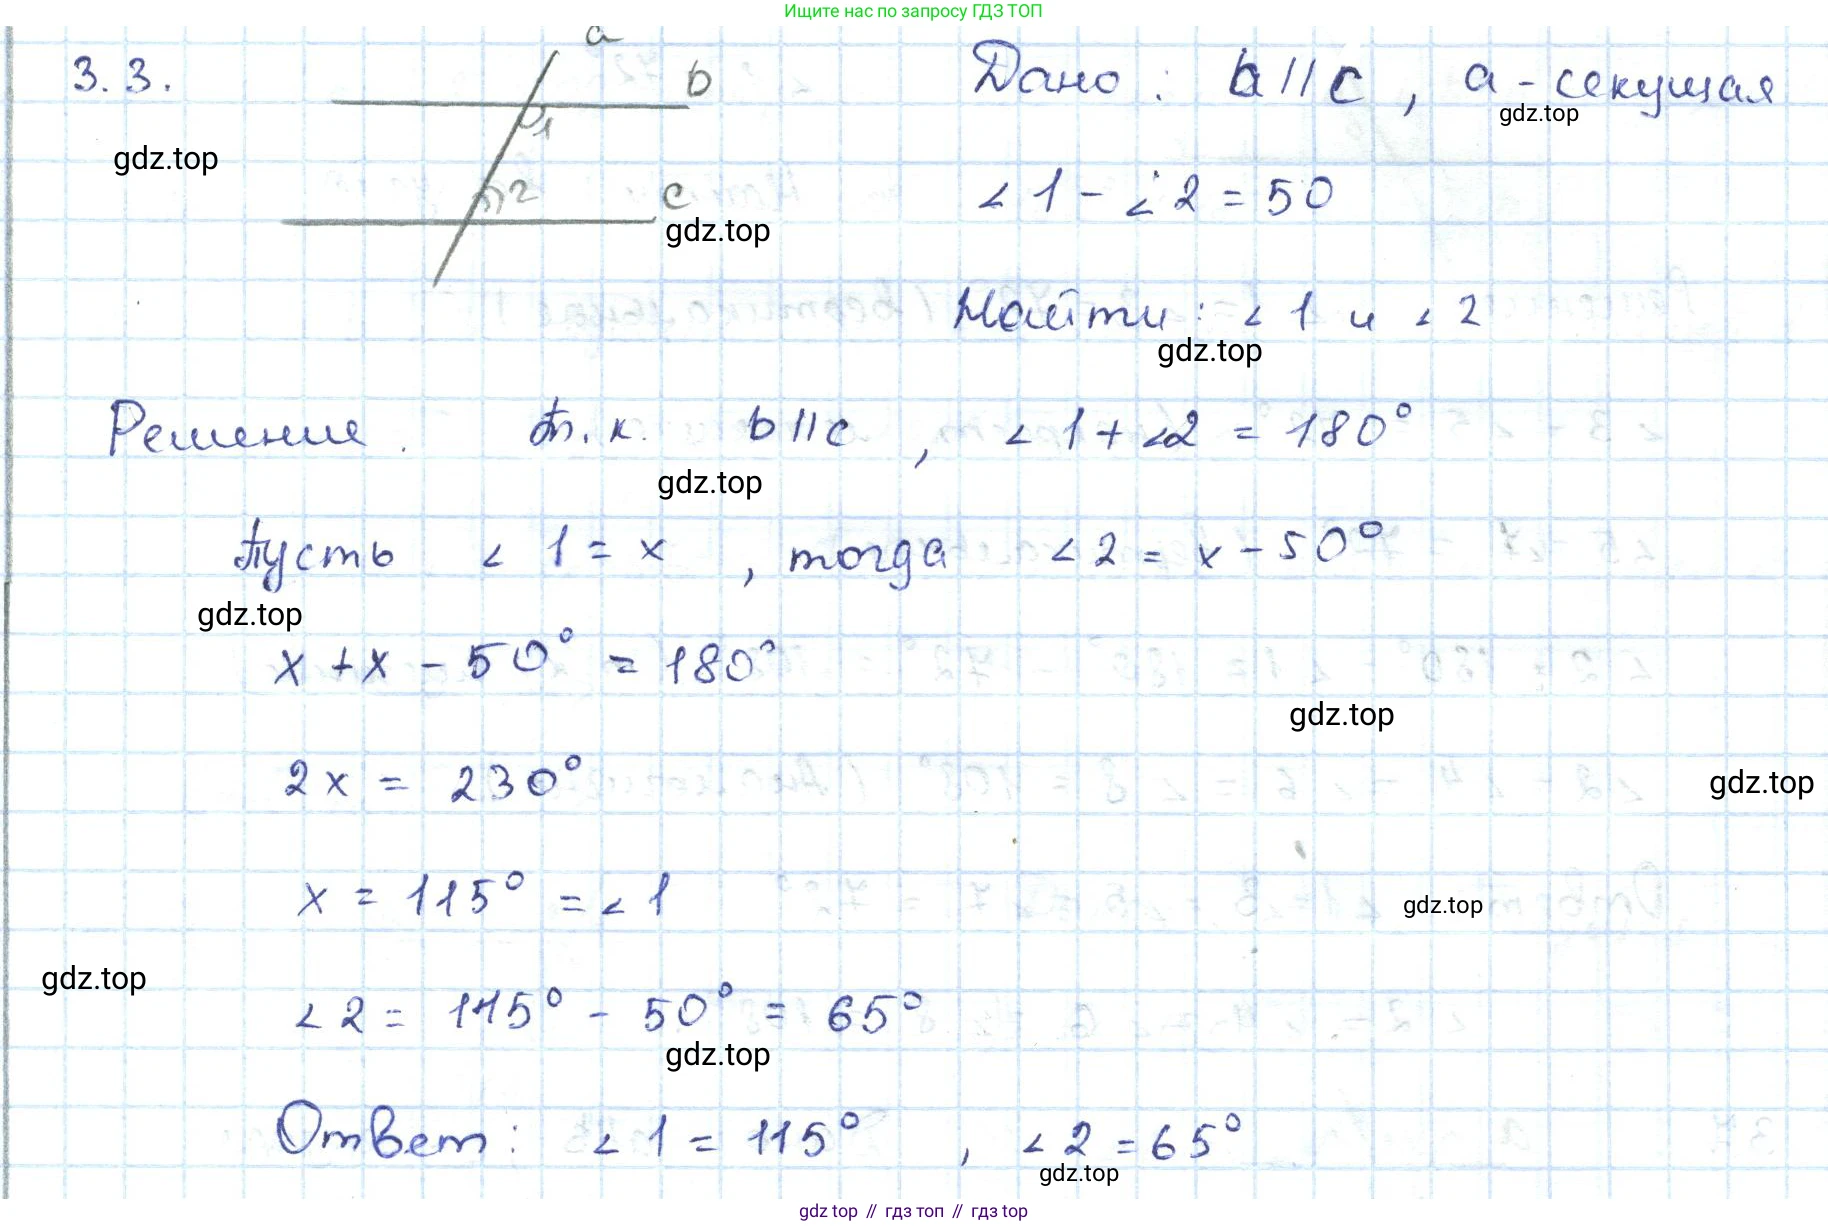 Ищите нас по запросу ГДЗ ТОП
3.3.
a
b
1
2
c
Дано: b || c, a - секущая
gdz.top
gdz.top
∠1 - ∠2 = 50
gdz.top
Найти: ∠1 и ∠2
gdz.top
Решение. Т.к. b || c, ∠1 + ∠2 = 180°
gdz.top
Пусть ∠1 = x, тогда ∠2 = x - 50°
gdz.top
x + x - 50° = 180°
gdz.top
2x = 230°
gdz.top
x = 115° = ∠1
gdz.top
gdz.top
∠2 = 115° - 50° = 65°
gdz.top
Ответ: ∠1 = 115°, ∠2 = 65°
gdz.top
gdz top // гдз топ // гдз top